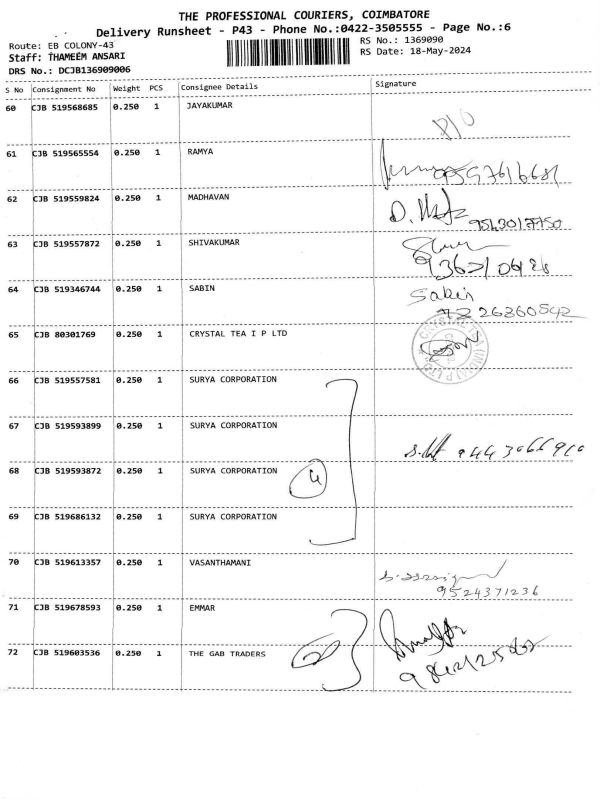 THE PROFESSIONAL COURIERS, COIMBATORE
Delivery Runsheet - P43 - Phone No.:0422-3505555 - Page No.:6
Route: EB COLONY-43
RS No.: 1369090
Staff: THAMEEM ANSARI
RS Date: 18-May-2024
DRS No.: DCJB136909006
S No Consignment No Weight PCS Consignee Details Signature
60 CJB 519568685 0.250 1 JAYAKUMAR
61 CJB 519565554 0.250 1 RAMYA
62 CJB 519559824 0.250 1 MADHAVAN
63 CJB 519557872 0.250 1 SHIVAKUMAR
64 CJB 519346744 0.250 1 SABIN Sabin
65 CJB 80301769 0.250 1 CRYSTAL TEA I P LTD
66 CJB 519557581 0.250 1 SURYA CORPORATION
67 CJB 519593899 0.250 1 SURYA CORPORATION
68 CJB 519593872 0.250 1 SURYA CORPORATION 4
69 CJB 519686132 0.250 1 SURYA CORPORATION
70 CJB 519613357 0.250 1 VASANTHAMANI
9524371236
71 CJB 519678593 0.250 1 EMMAR
72 CJB 519603536 0.250 1 THE GAB TRADERS